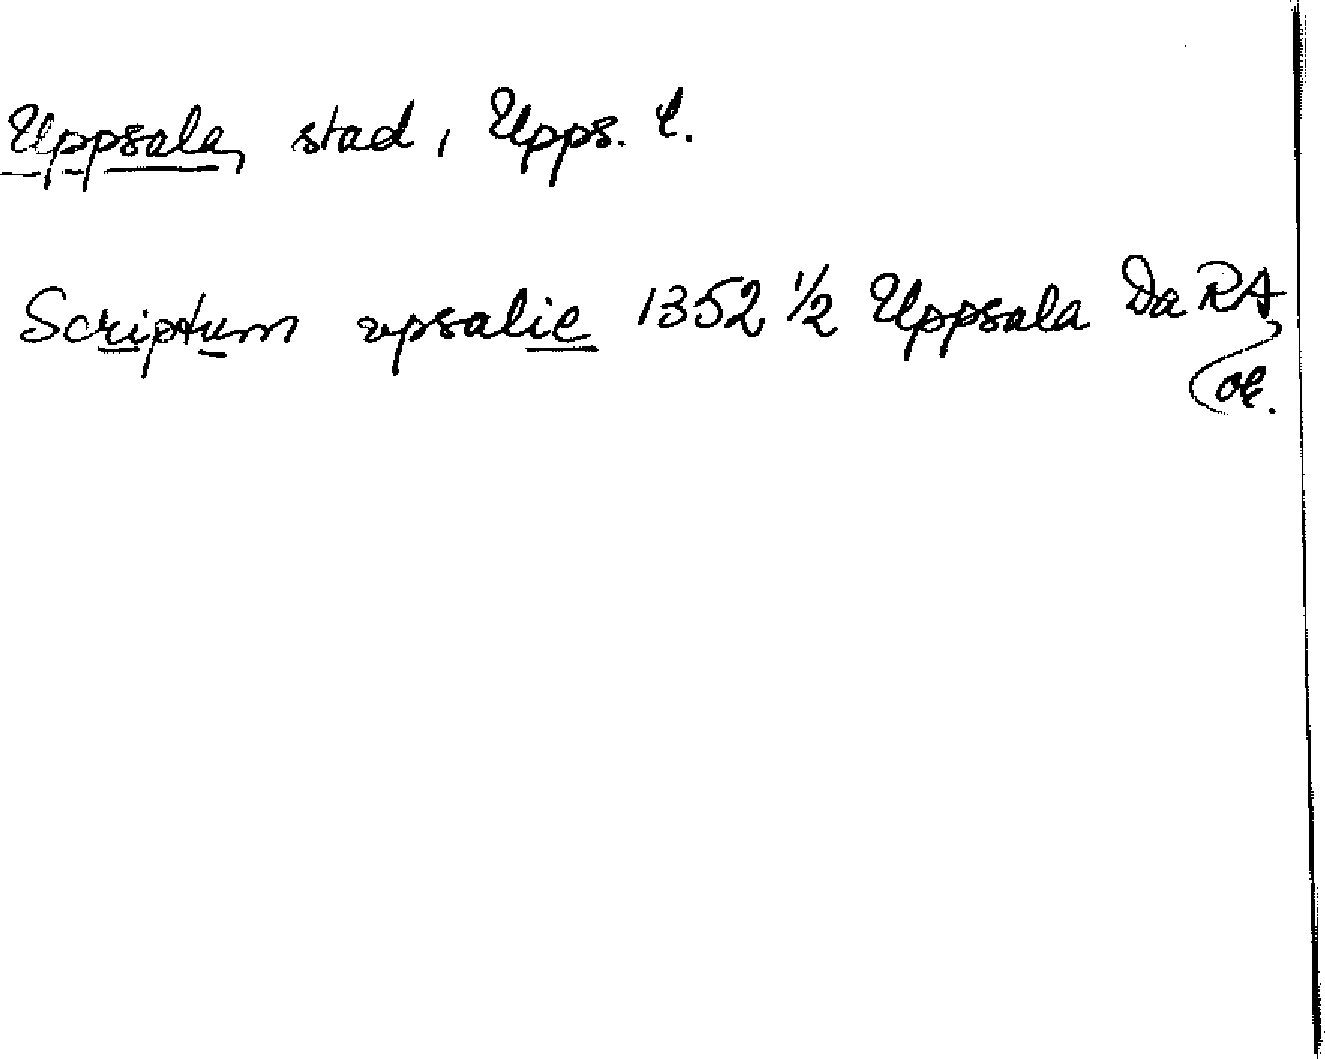 Uppsala, stad, Upps. l.
Scriptum vpsalie 1352 1/2 Uppsala Da RA
or.